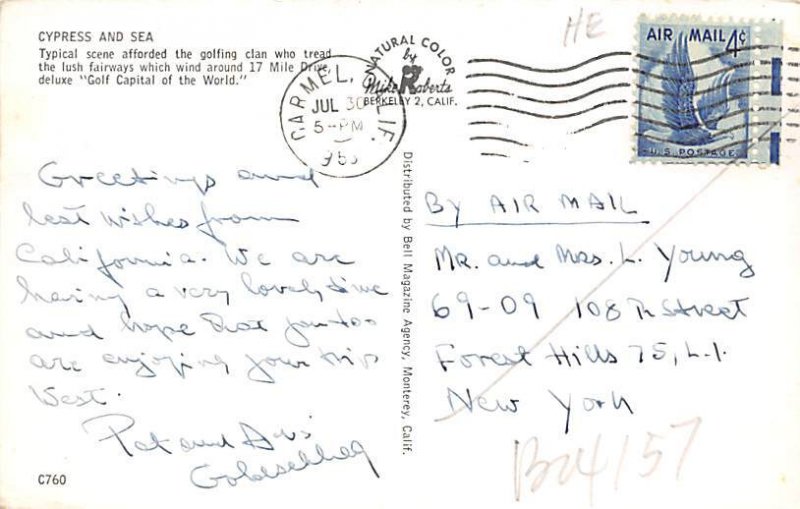 CYPRESS AND SEA
Typical scene afforded the golfing clan who tread
the lush fairways which wind around 17 Mile Drive,
deluxe "Golf Capital of the World."
NATURAL COLOR
by
Mike Roberts
BERKELEY 2, CALIF.
CARMEL, CALIF.
JUL 30
5-PM
HE
AIR MAIL 4¢
U.S. POSTAGE
Greetings and
best wishes from
California. We are
having a very lovely time
and hope that you too
are enjoying your trip
West.
Pat and
C760
Distributed by Bell Magazine Agency, Monterey, Calif.
BY AIR MAIL
Mr. and Mrs. L. Young
69-09 108 Th Street
Forest Hills 75, L.I.
New York